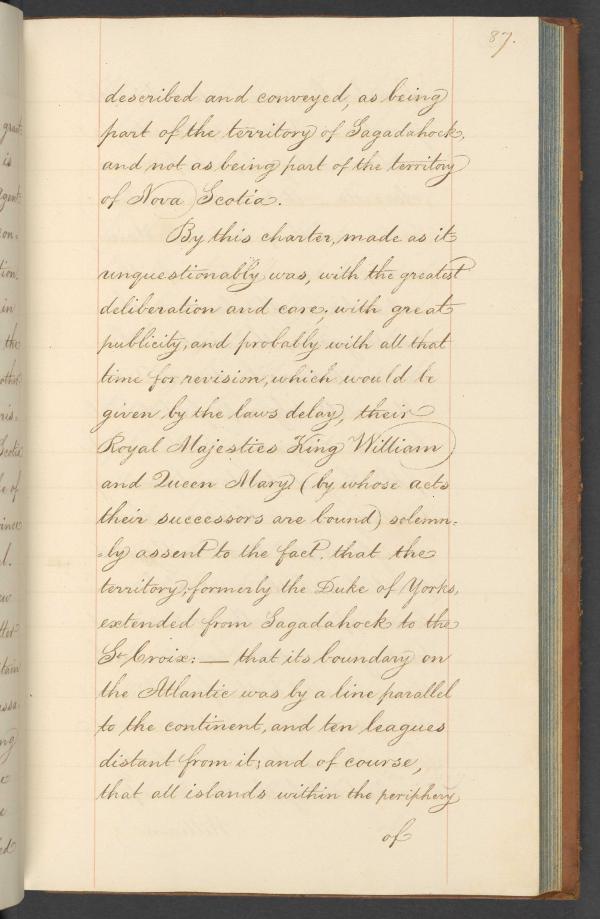 87.
described and conveyed, as being
part of the territory of Sagadahock,
and not as being part of the territory
of Nova Scotia.
By this charter, made as it
unquestionably was, with the greatest
deliberation and care, with great
publicity, and probably with all that
time for revision, which would be
given by the laws delay, their
Royal Majesties King William
and Queen Mary (by whose acts
their successors are bound) solemn-
-ly assent to the fact, that the
territory, formerly the Duke of Yorks,
extended from Sagadahock to the
St Croix: — that its boundary on
the Atlantic was by a line parallel
to the continent, and ten leagues
distant from it; and of course,
that all islands within the periphery
of